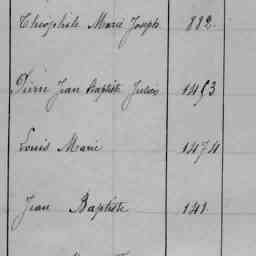 Théophile Marie Joseph 882
Pierre Jean Baptiste Julien 1453
Louis Marie 1474
Jean Baptiste 141